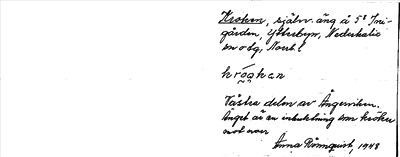 Kroken, självr. äng å 5² Jni-
gården, Ytterbyn, Nederkalix
sn o dg, Norrb l
krógken
Västra delen av Ängesviken.
Änget är en inbuktning som kröker
mot norr
Anna Rönnqvist, 1948